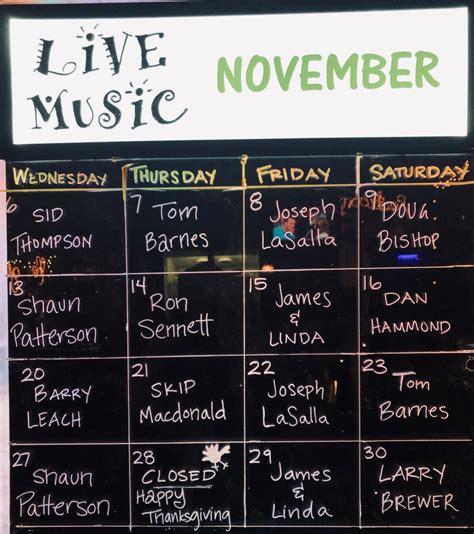 LIVE
MUSIC
NOVEMBER
WEDNESDAY THURSDAY FRIDAY SATURDAY
6
SID
THOMPSON
7
Tom
Barnes
8
Joseph
LaSalla
9
DOUG
BISHOP
13
Shaun
Patterson
14
Ron
Sennett
15
James
&
LINDA
16
DAN
HAMMOND
20
BARRY
LEACH
21
SKIP
Macdonald
22
Joseph
LaSalla
23
Tom
Barnes
27
Shaun
Patterson
28
CLOSED
Happy
Thanksgiving
29
James
&
Linda
30
LARRY
BREWER